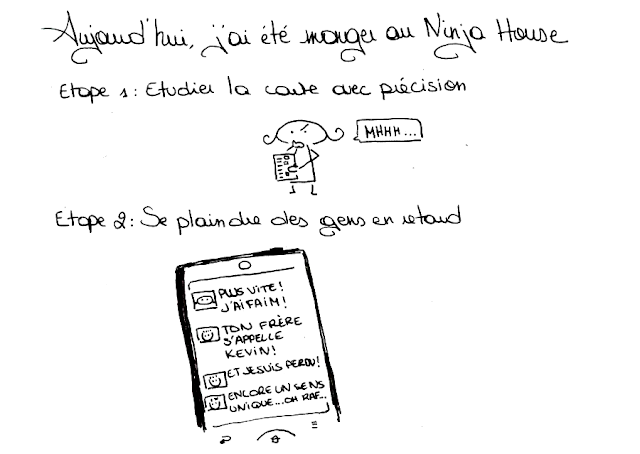 Aujourd'hui, j'ai été manger au Ninja House
Etape 1 : Etudier la carte avec précision
MHHH...
Etape 2 : Se plaindre des gens en retard
PLUS VITE !
J'AI FAIM !
TON FRÈRE
S'APPELLE
KEVIN !
ET JE SUIS PERDU !
ENCORE UN SENS
UNIQUE... OH RAF...